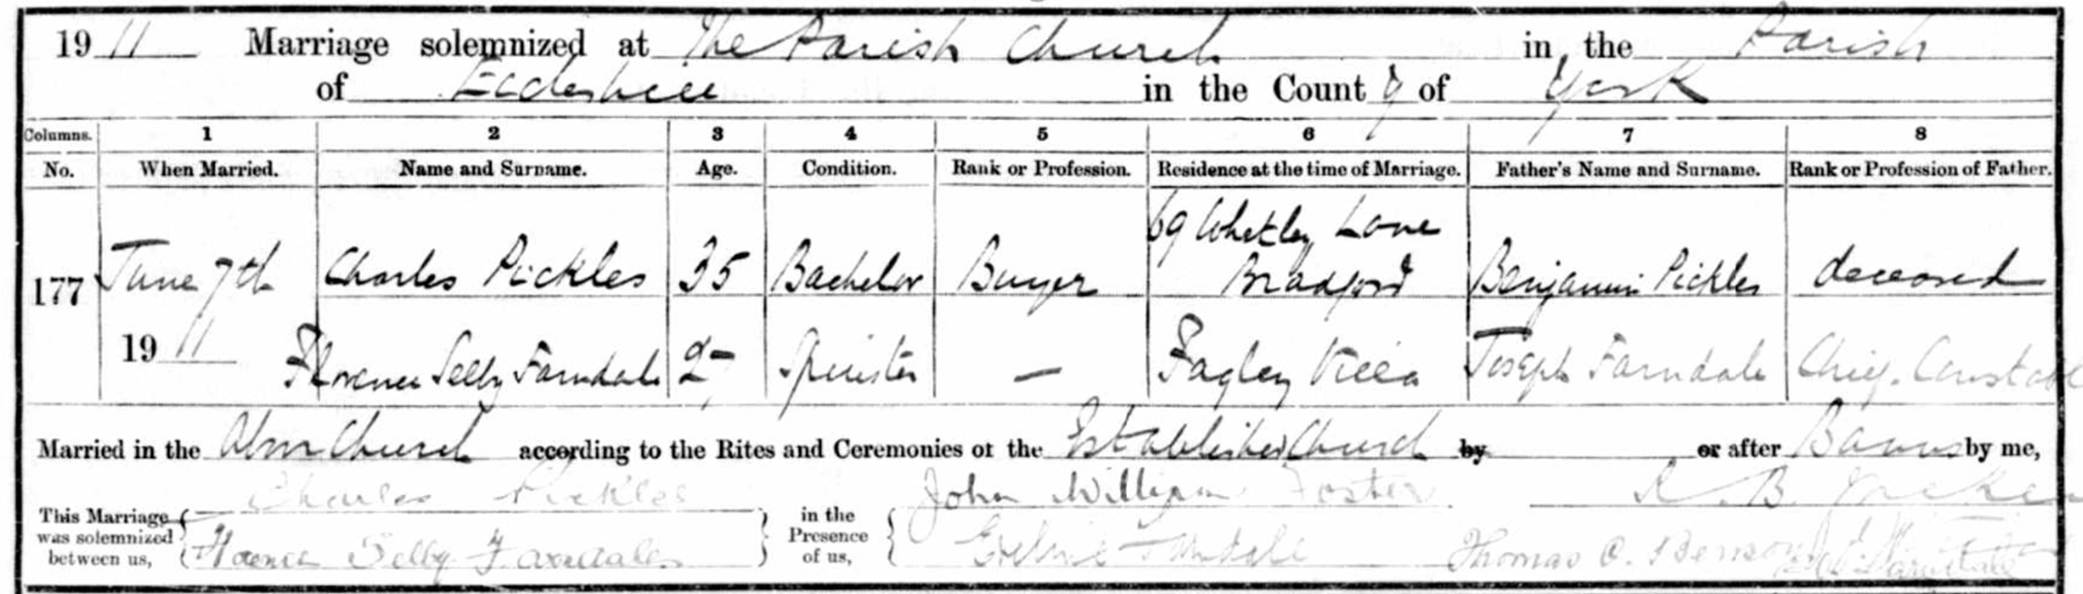 1911 Marriage solemnized at The Parish Church in the Parish
of Eccleshill in the County of York
Columns. 1 2 3 4 5 6 7 8
No. When Married. Name and Surname. Age. Condition. Rank or Profession. Residence at the time of Marriage. Father's Name and Surname. Rank or Profession of Father.
177 June 7th 1911 Charles Pickles 35 Bachelor Buyer 69 Whetley Lane Bradford Benjamin Pickles deceased
Florence Selby Farndale Spinster — Fagley Villa Joseph Farndale Chief Constable
Married in the Church according to the Rites and Ceremonies of the Established Church by or after Banns by me,
Charles Pickles John William Foster
This Marriage was solemnized between us, in the Presence of us,
Florence Selby Farndale Farndale Thomas O. Benson